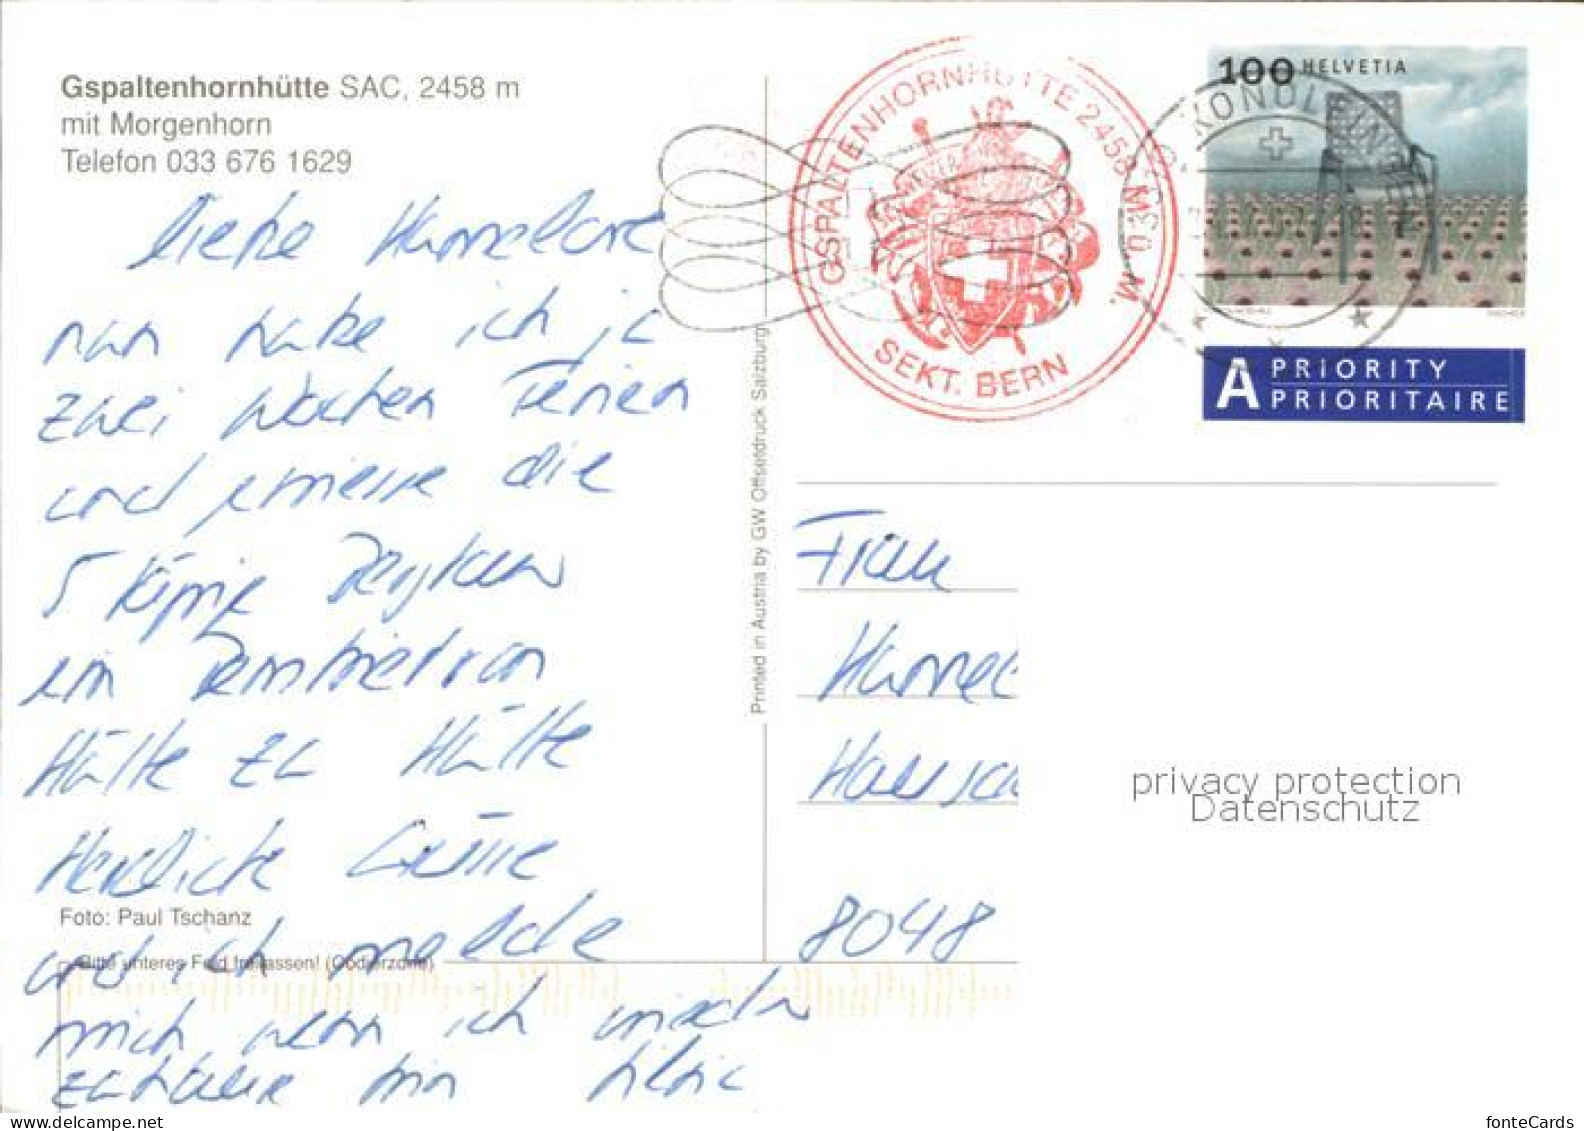 Gspaltenhornhütte SAC, 2458 m
mit Morgenhorn
Telefon 033 676 1629
liebe Hannelore
nun habe ich ja
zwei Wochen Ferien
und geniesse die
5 Tage
im Berner Oberland von
Hütte zu Hütte
Herzliche Grüsse
Foto: Paul Tschanz
und ich melde
Bitte unteres Feld freilassen! (Codierzone)
mich wenn ich wieder
zuhause bin
Printed in Austria by GW Offsetdruck Salzburg
GSPALTENHORNHÜTTE 2458 M.ü.M.
SEKT. BERN
100 HELVETIA
A PRIORITY
PRIORITAIRE
Frau
Hannel
Hausch
8048
privacy protection
Datenschutz
fonteCards